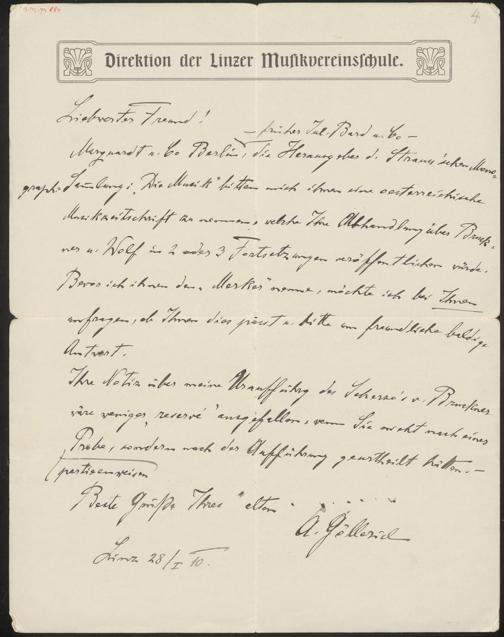 4
Direktion der Linzer Musikvereinsschule.
Liebwerter Freund!
– früher Jul. Bard u. Co –
Marquardt u. Co Berlin, die Herausgeber d. Strauss'schen Mono-
graph. Sammlung: „Die Musik" bitten mich ihnen eine oesterreichische
Musikzeitschrift zu nennen, welche Ihre Abhandlung über Bruck-
ner u. Wolf in 2 oder 3 Fortsetzungen veröffentlichen würde.
Bevor ich ihnen den „Merker" nenne, möchte ich bei Ihnen
anfragen, ob Ihnen dies passt u. bitte um freundliche baldige
Antwort.
Ihre Notiz über meine Uraufführung des Scherzo's v. Bruckner
wäre weniger „reservé" ausgefallen, wenn Sie nicht nach einer
Probe, sondern nach der Aufführung geurtheilt hätten. –
partieenweisen
Beste Grüße Ihres „alten"
A. Göllerich
Linz 28/I 10.